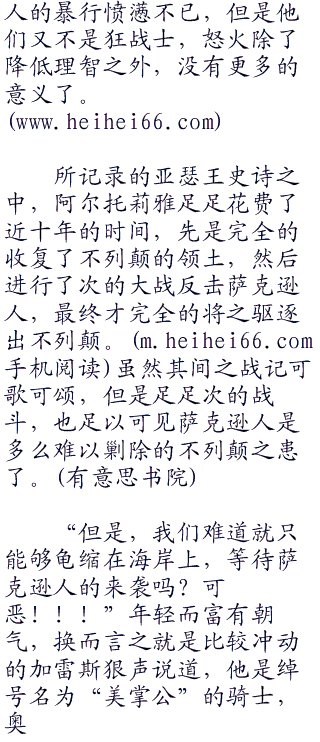 人的暴行愤懑不已，但是他
们又不是狂战士，怒火除了
降低理智之外，没有更多的
意义了。
(www.heihei66.com)
所记录的亚瑟王史诗之
中，阿尔托莉雅足足花费了
近十年的时间，先是完全的
收复了不列颠的领土，然后
进行了次的大战反击萨克逊
人，最终才完全的将之驱逐
出不列颠。(m.heihei66.com
手机阅读)虽然其间之战记可
歌可颂，但是足足次的战
斗，也足以可见萨克逊人是
多么难以剿除的不列颠之患
了。(有意思书院)
“但是，我们难道就只
能够龟缩在海岸上，等待萨
克逊人的来袭吗？可
恶！！！”年轻而富有朝
气，换而言之就是比较冲动
的加雷斯狠声说道，他是绰
号名为“美掌公”的骑士，
奥